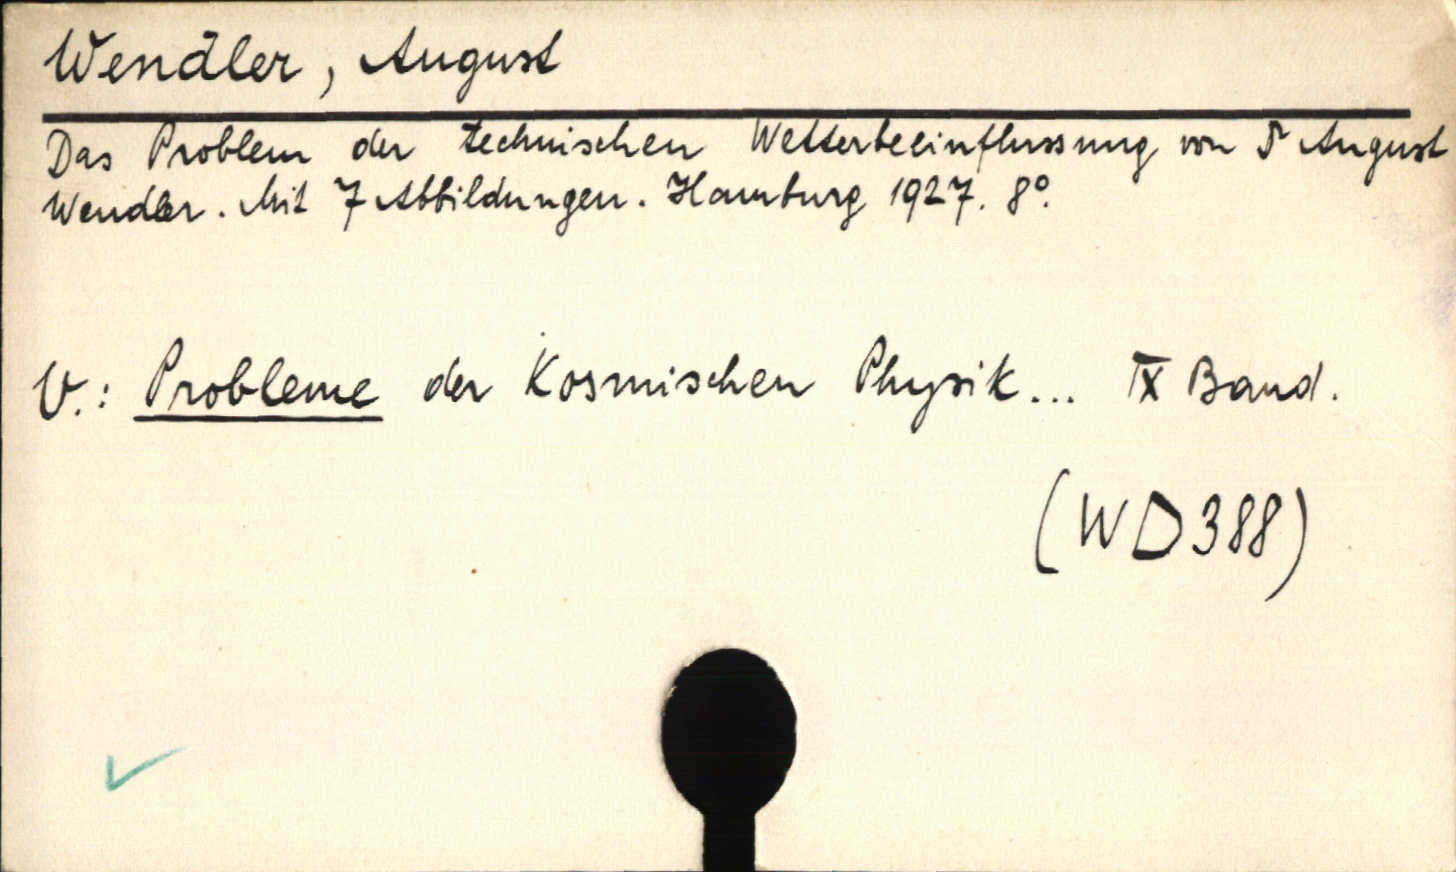 Wendler, August
Das Problem der technischen Wetterbeeinflussung von Dr August
Wendler. Mit 7 Abbildungen. Hamburg 1927. 8°.
V.: Probleme der Kosmischen Physik... IX Band.
(WD388)